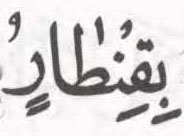 بِقِنْطَارٍ